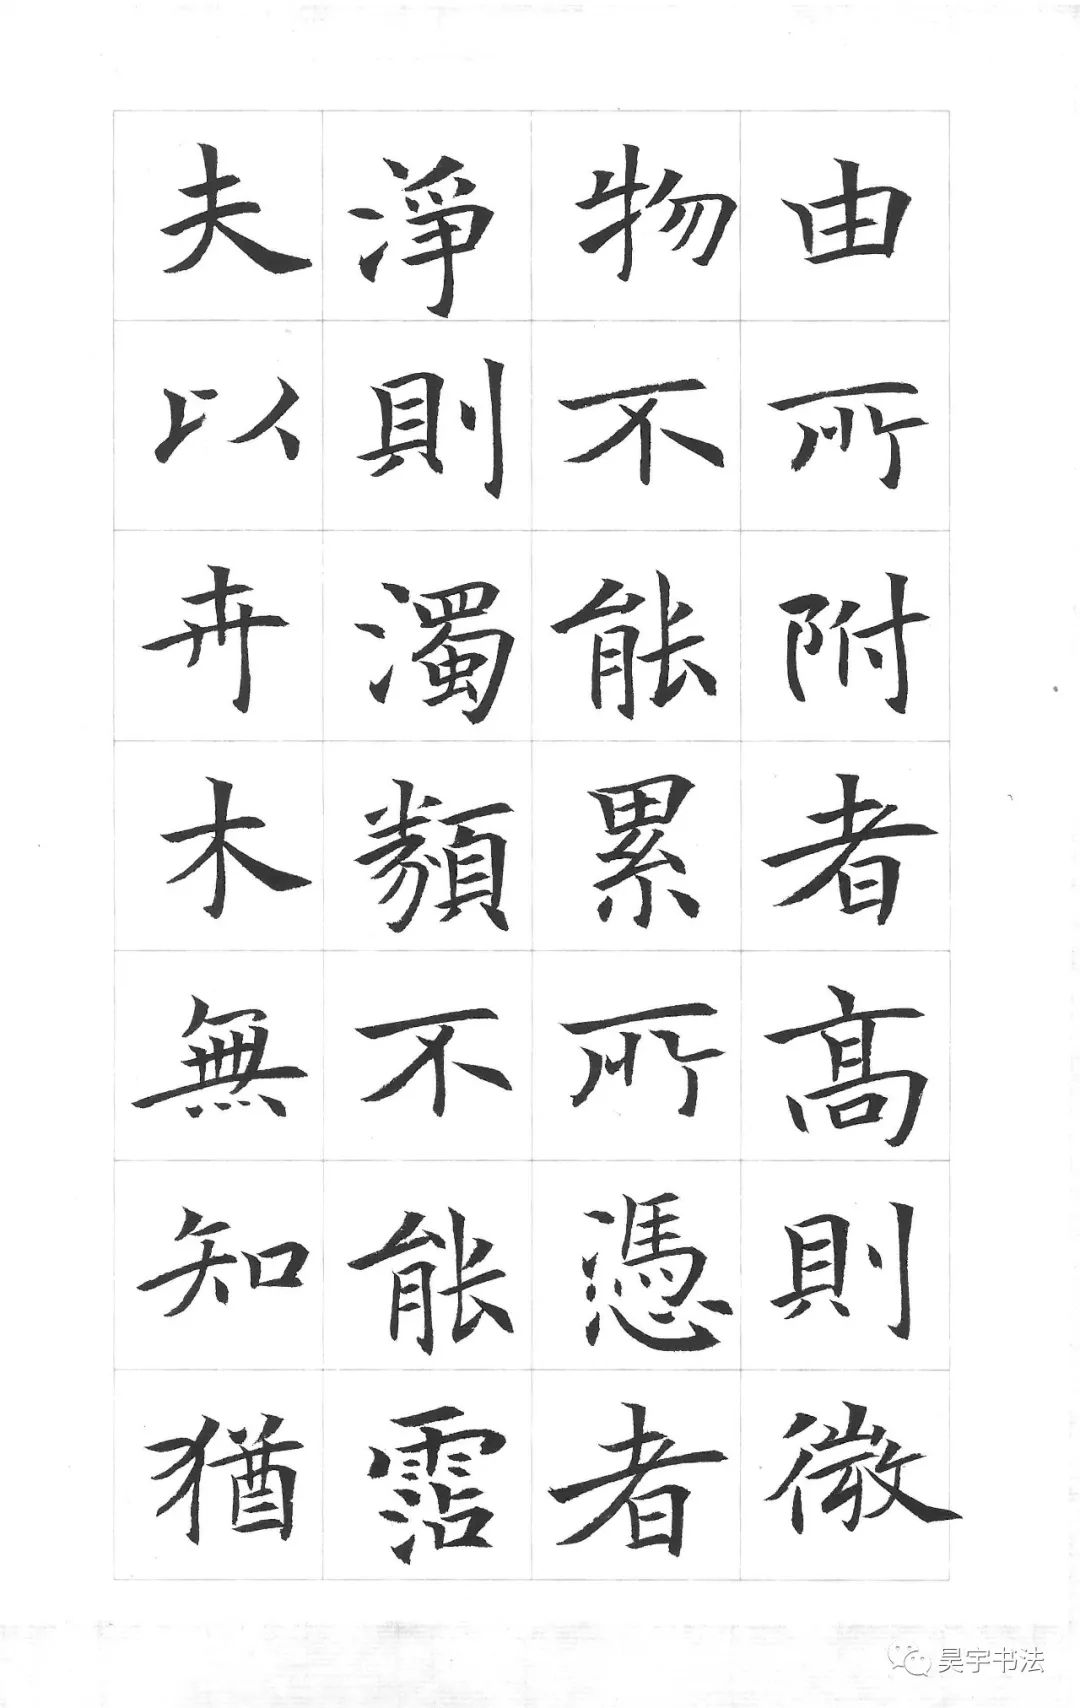 由所附者高則微
物不能累所憑者
淨則濁類不能霑
夫以卉木無知猶
昊宇书法